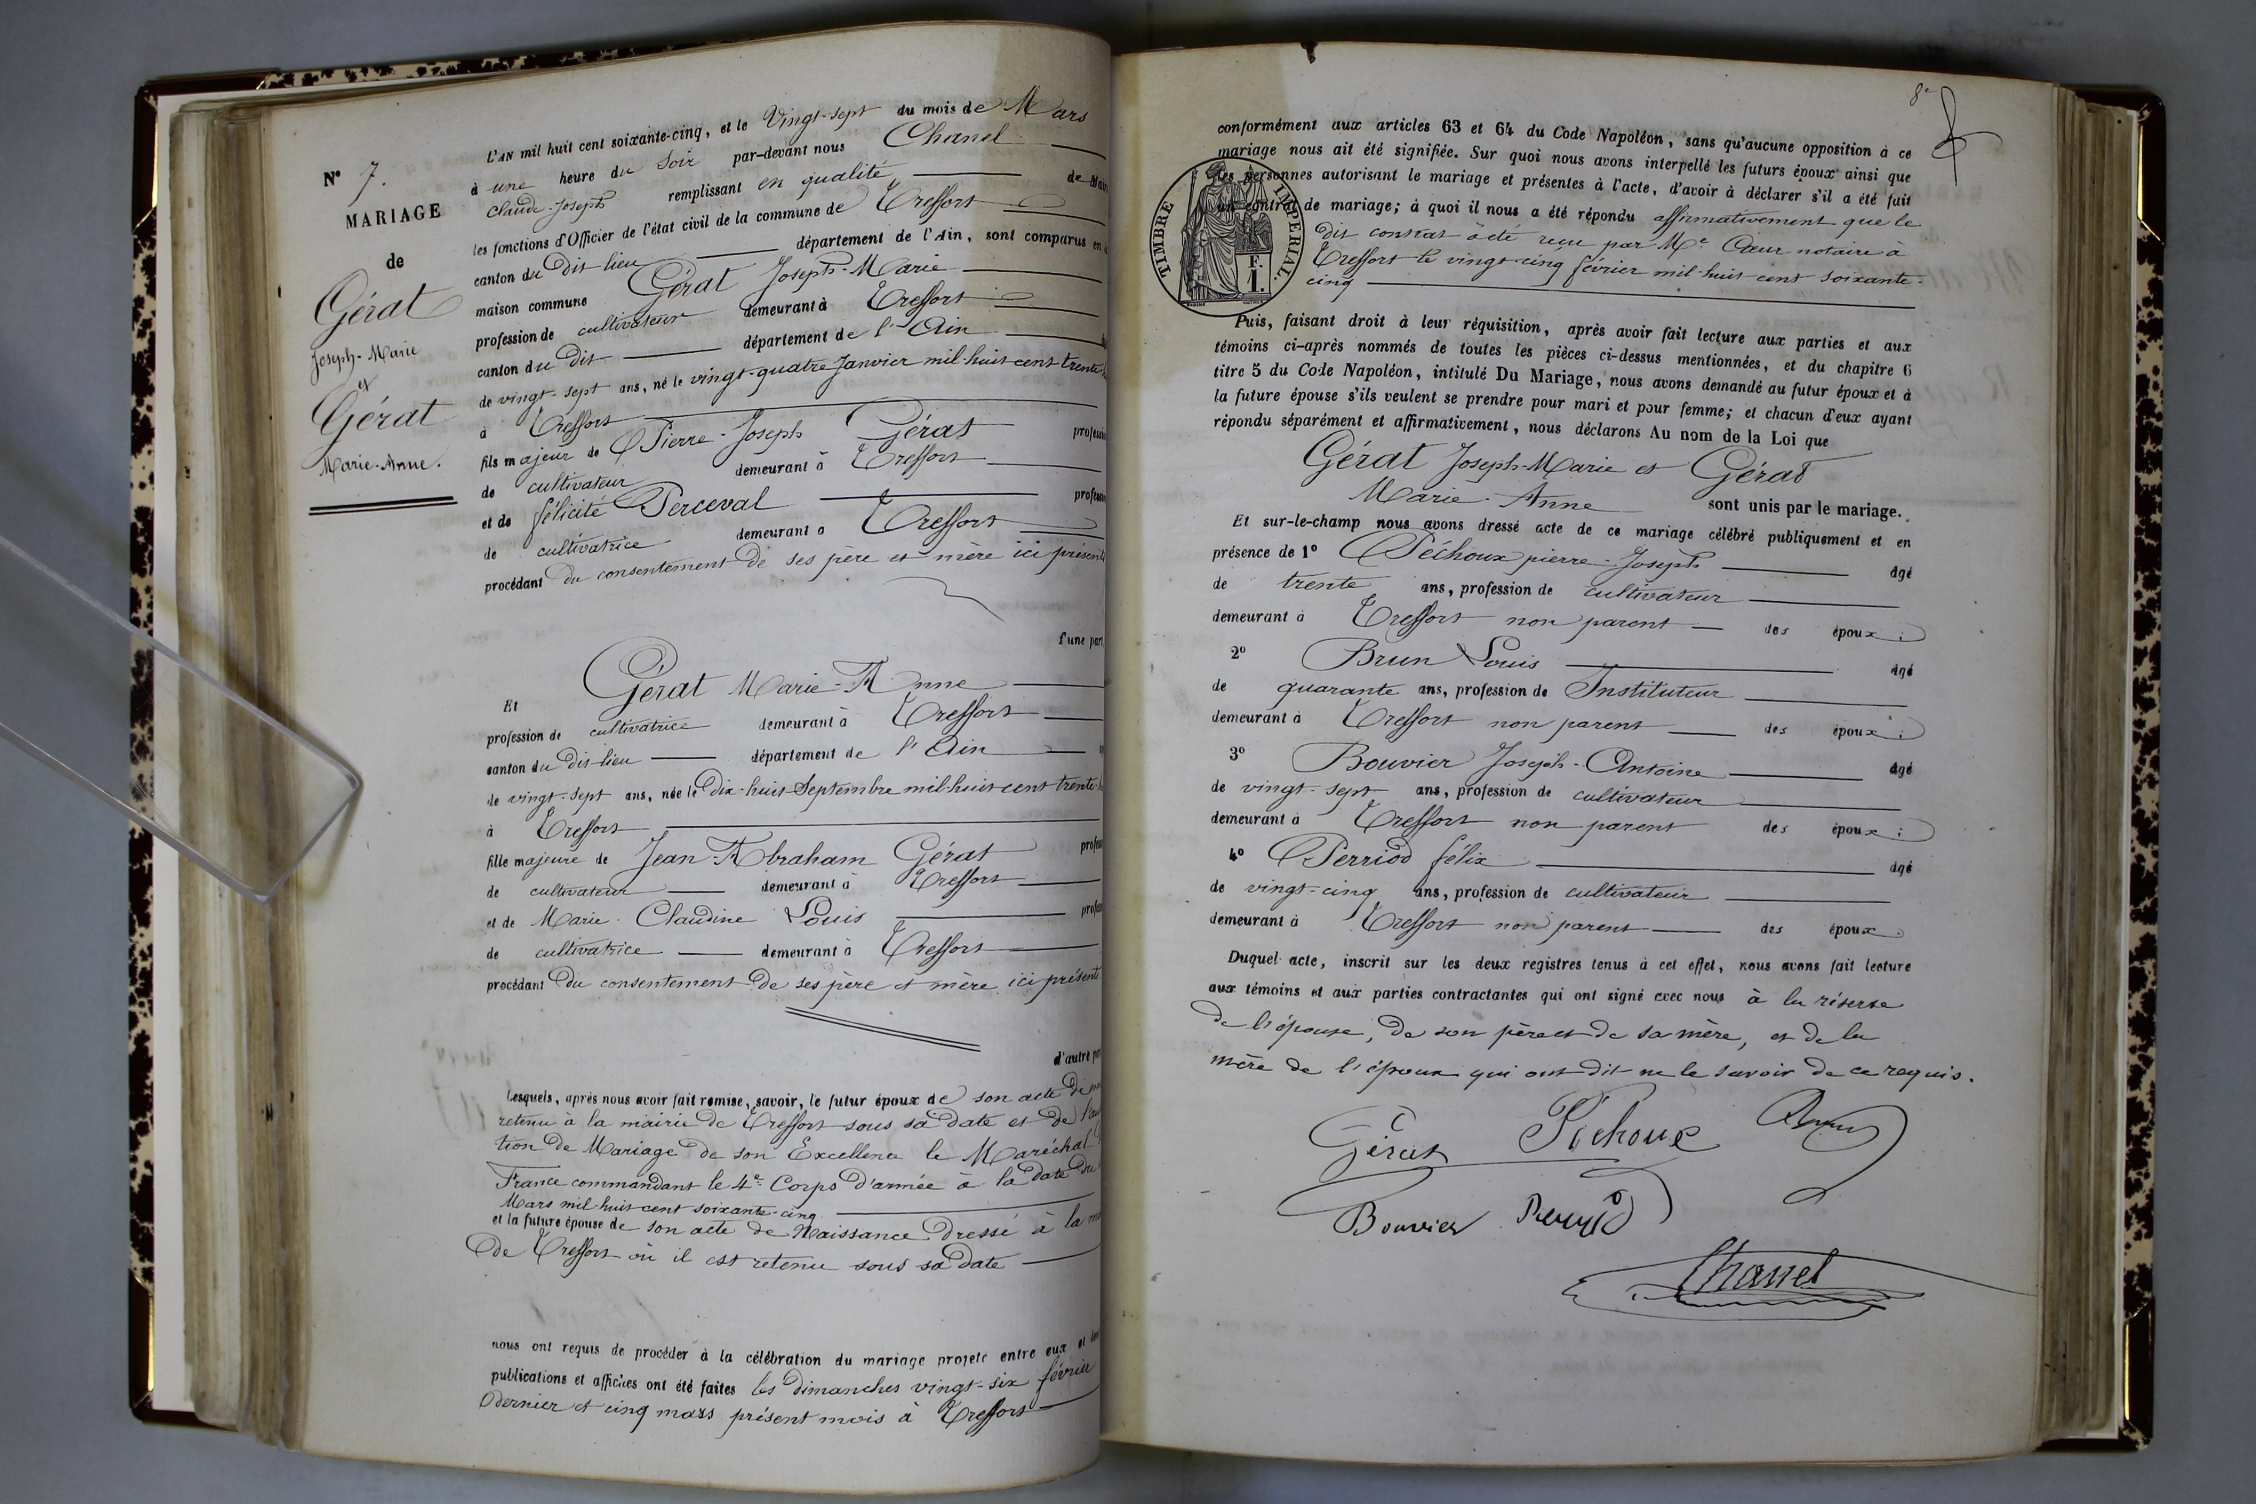 L'AN mil huit cent soixante-cinq, et le Vingt-sept du mois de Mars
à une heure du Soir par-devant nous Chanel
Claude-Joseph remplissant en qualité de Mai
les fonctions d'Officier de l'état civil de la commune de Treffort
canton du dit lieu département de l'Ain, sont comparus en
maison commune Gérat Joseph-Marie
profession de cultivateur demeurant à Treffort
canton du dit département de l'Ain
de vingt-sept ans, né le vingt-quatre Janvier mil-huit cent trente
à Treffort
fils majeur de Pierre-Joseph Gérat profession
de cultivateur demeurant à Treffort
et de félicité Perceval profession
de cultivatrice demeurant à Treffort
procédant du consentement de ses père et mère ici présents
d'une part
N° 7.
MARIAGE
de
Gérat
Joseph-Marie
et
Gérat
Marie-Anne.
Et Gérat Marie-Anne
profession de cultivatrice demeurant à Treffort
canton du dit-lieu département de l'Ain
de vingt-sept ans, née le Dix-huit Septembre mil-huit cent trente
à Treffort
fille majeure de Jean Abraham Gérat profes
de cultivateur demeurant à Treffort
et de Marie-Claudine Louis profes
de cultivatrice demeurant à Treffort
procédant du consentement de ses père et mère ici présents
d'autre par
Lesquels, après nous avoir fait remise, savoir, le futur époux de son acte de
retenu à la mairie de Treffort sous sa date et de l'au
tion de Mariage de son Excellence le Maréchal
France commandant le 4e Corps d'armée à la date du
Mars mil-huit cent soixante-cinq
et la future épouse de son acte de Naissance dressé à la
de Treffort où il est retenu sous sa date
nous ont requis de procéder à la célébration du mariage projeté entre eux et
publications et affiches ont été faites les dimanches vingt-six février
dernier et cinq mars présent mois à Treffort
8e
conformément aux articles 63 et 64 du Code Napoléon, sans qu'aucune opposition à ce
mariage nous ait été signifiée. Sur quoi nous avons interpellé les futurs époux ainsi que
les personnes autorisant le mariage et présentes à l'acte, d'avoir à déclarer s'il a été fait
un contrat de mariage; à quoi il nous a été répondu affirmativement que le
dit contrat a été reçu par Me Cœur notaire à
Treffort le vingt-cinq février mil-huit cent soixante-
cinq
TIMBRE IMPÉRIAL.
F.
1.
Puis, faisant droit à leur réquisition, après avoir fait lecture aux parties et aux
témoins ci-après nommés de toutes les pièces ci-dessus mentionnées, et du chapitre 6
titre 5 du Code Napoléon, intitulé Du Mariage, nous avons demandé au futur époux et à
la future épouse s'ils veulent se prendre pour mari et pour femme; et chacun d'eux ayant
répondu séparément et affirmativement, nous déclarons Au nom de la Loi que
Gérat Joseph-Marie et Gérat
Marie-Anne sont unis par le mariage.
Et sur-le-champ nous avons dressé acte de ce mariage célébré publiquement et en
présence de 1° Péchoux pierre-Joseph âgé
de trente ans, profession de cultivateur
demeurant à Treffort non parent des époux;
2° Brun Louis âgé
de quarante ans, profession de Instituteur
demeurant à Treffort non parent des époux;
3° Bouvier Joseph-Antoine âgé
de vingt-sept ans, profession de cultivateur
demeurant à Treffort non parent des époux;
4° Perriod félix âgé
de vingt-cinq ans, profession de cultivateur
demeurant à Treffort non parent des époux
Duquel acte, inscrit sur les deux registres tenus à cet effet, nous avons fait lecture
aux témoins et aux parties contractantes qui ont signé avec nous à la réserve
de l'épouse, de son père et de sa mère, et de la
mère de l'époux qui ont dit ne le savoir de ce requis.
Gérat Péchoux Brun
Bouvier Perriod
Chanel